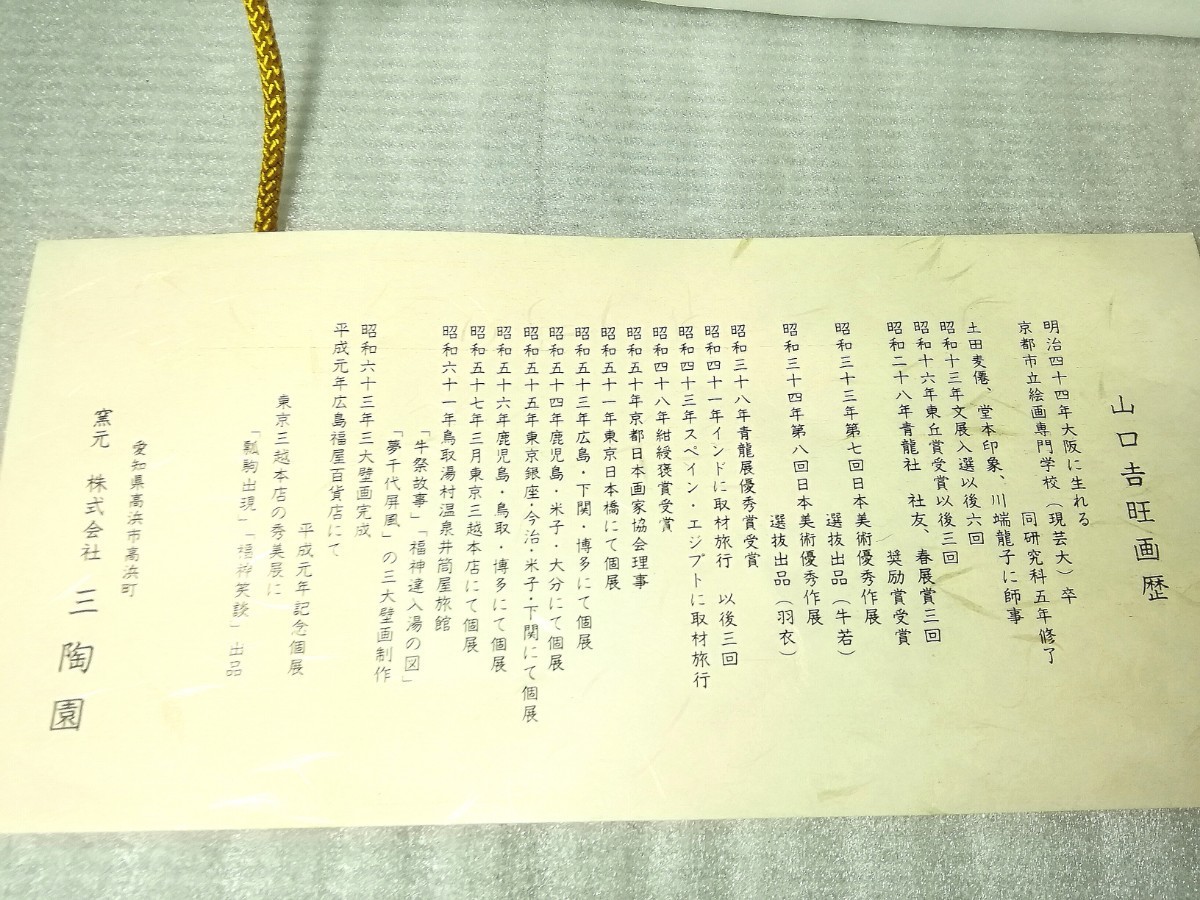 山口吉旺画歴
明治四十四年大阪に生れる
京都市立絵画専門学校（現芸大）卒
同研究科五年修了
土田麦僊、堂本印象、川端龍子に師事
昭和十三年文展入選以後六回
昭和十六年東丘賞受賞以後三回
昭和二十八年青龍社 社友、春展賞三回
奨励賞受賞
昭和三十三年第七回日本美術優秀作展
選抜出品（牛若）
昭和三十四年第八回日本美術優秀作展
選抜出品（羽衣）
昭和三十八年青龍展優秀賞受賞
昭和四十一年インドに取材旅行 以後三回
昭和四十三年スペイン・エジプトに取材旅行
昭和四十八年紺綬褒賞受賞
昭和五十年京都日本画家協会理事
昭和五十一年東京日本橋にて個展
昭和五十三年広島・下関・博多にて個展
昭和五十四年鹿児島・米子・大分にて個展
昭和五十五年東京銀座・今治・米子・下関にて個展
昭和五十六年鹿児島・鳥取・博多にて個展
昭和五十七年三月東京三越本店にて個展
昭和六十一年鳥取湯村温泉井筒屋旅館
「牛祭故事」「福神達入湯の図」
「夢千代屏風」の三大壁画制作
昭和六十三年三大壁画完成
平成元年広島福屋百貨店にて
平成元年記念個展
東京三越本店の秀美展に
「瓢駒出現」「福神笑談」出品
愛知県高浜市高浜町
窯元 株式会社 三陶園